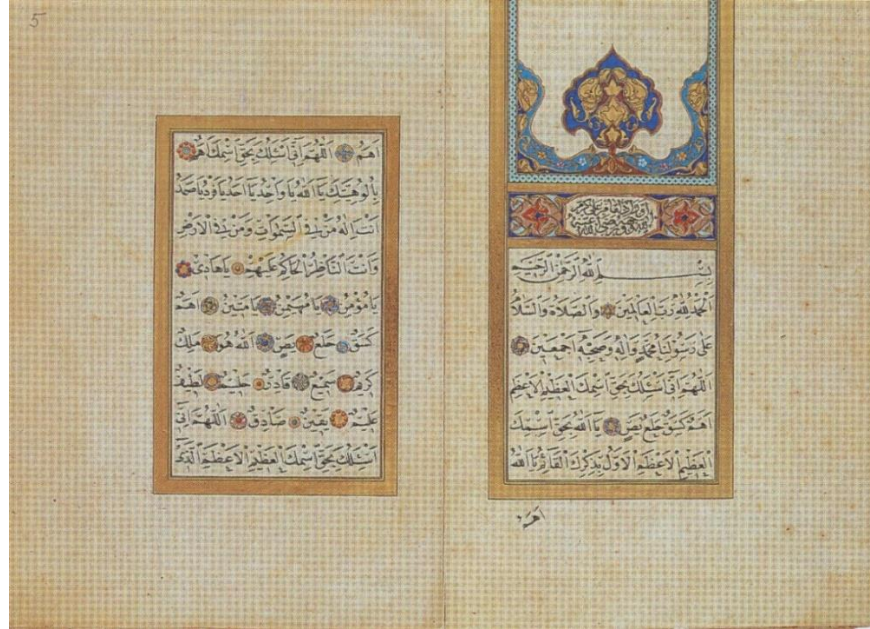 بسم الله الرحمن الرحيم
الحمد لله رب العالمين والصلاة والسلام
على رسولنا محمد وآله وصحبه اجمعين
اللهم انى اسئلك بحق اسمك العظيم الاعظم
اهم كسق حلع يص يا الله بحق اسمك
العظيم الاعظم الاول بذكرك القائم يا الله
اهم
5
اهم اللهم انى اسئلك بحق اسمك اهم
بالوهيتك يا الله يا واحد يا احد يا فرد يا صمد
انت اله من فى السموات ومن فى الارض
وانت الناظر الحاكم عليهم يا هادى
يا مؤمن يا مهيمن يا متين اهم
كسق حلع يص الله هو ملك
كريم سميع قادر حليم لطيف
عليم يقين صادق اللهم انى
اسئلك بحق اسمك العظيم الاعظم الذى